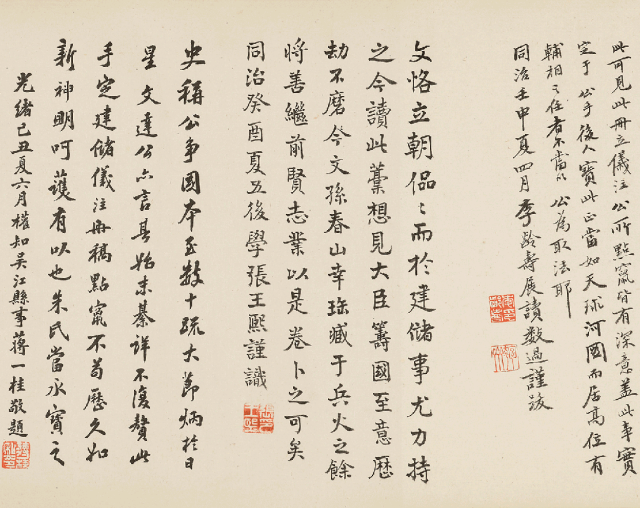 此可見此冊立儀注公所點竄皆有深意蓋此事實
定于公手後人寶此正當如天球河圖而居高位有
輔相之任者不當以公為取法耶
同治壬申夏四月李齡壽展讀數過謹跋
文恪立朝侃〻而於建儲事尤力持
之今讀此藁想見大臣籌國至意歷
劫不磨今文孫春山幸珍藏于兵火之餘
將善繼前賢志業以是卷卜之可矣
同治癸酉夏五後學張王熙謹識
史稱公爭國本至數十疏大節炳於日
星文達公六言其始末綦詳不復贅此
手定建儲儀注冊稿點竄不苟歷久如
新神明呵護有以也朱民當永寶之
光緒己丑夏六月權知吳江縣事蔣一桂敬題